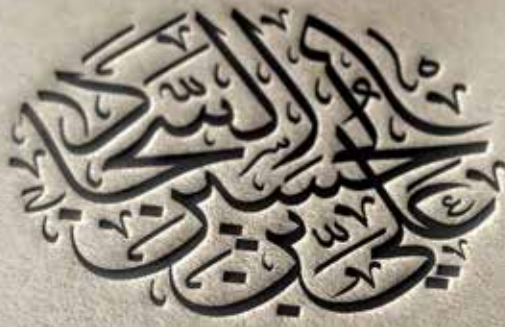 علي بن الحسين السجاد